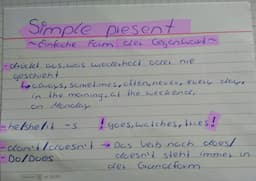 Simple present
~ Einfache Form der Gegenwart ~
- drückt aus, was wiederholt oder nie
geschieht
↳ always, sometimes, often, never, every day,
in the morning, at the weekend,
on Monday
- he/she/it -s ! goes, watches, tries !
- don't/doesn't → Das Verb nach does/
- Do/Does doesn't steht immer in
der Grundform